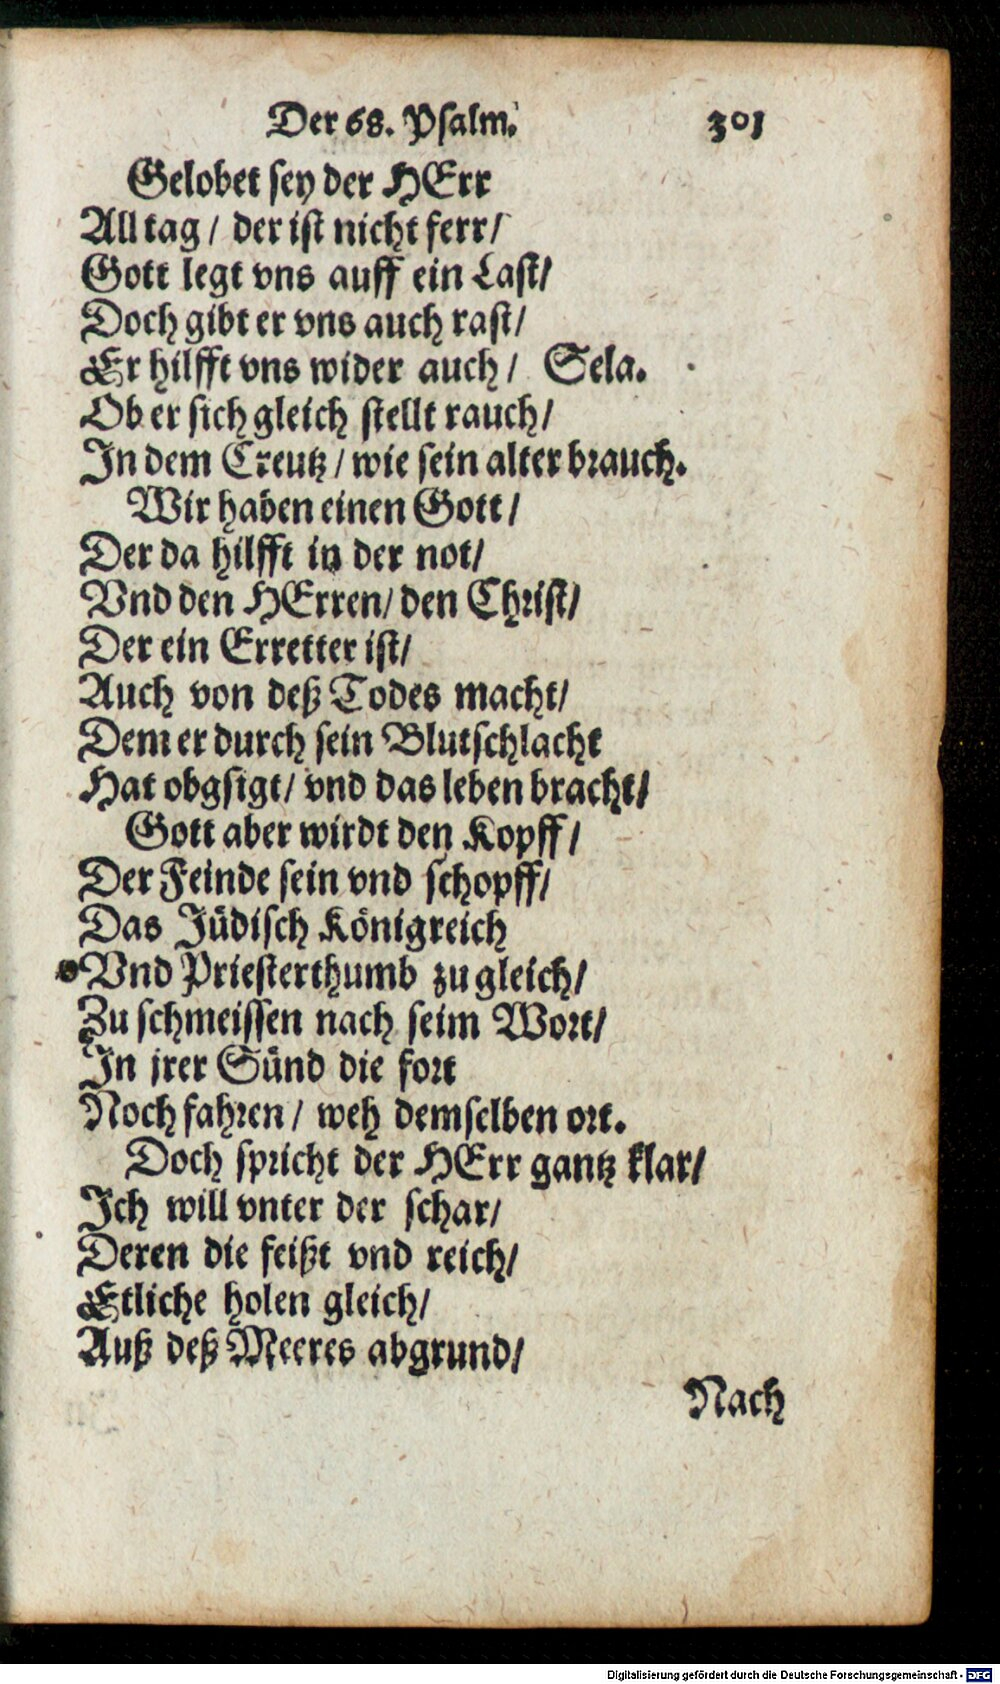 Der 68. Psalm. 301
Gelobet sey der HErr
All tag / der ist nicht ferr /
Gott legt vns auff ein Last /
Doch gibt er vns auch rast /
Er hilfft vns wider auch / Sela.
Ob er sich gleich stellt rauch /
In dem Creutz / wie sein alter brauch.
Wir haben einen Gott /
Der da hilfft in der not /
Vnd den HErren / den Christ /
Der ein Erretter ist /
Auch von deß Todes macht /
Dem er durch sein Blutschlacht
Hat obgsigt / vnd das leben bracht /
Gott aber wirdt den Kopff /
Der Feinde sein vnd schopff /
Das Jüdisch Königreich
Vnd Priesterthumb zu gleich /
Zu schmeissen nach seim Wort /
In jrer Sünd die fort
Noch fahren / weh demselben ort.
Doch spricht der HErr gantz klar /
Ich will vnter der schar /
Deren die feißt vnd reich /
Etliche holen gleich /
Auß deß Meeres abgrund /
Nach
Digitalisierung gefördert durch die Deutsche Forschungsgemeinschaft - DFG